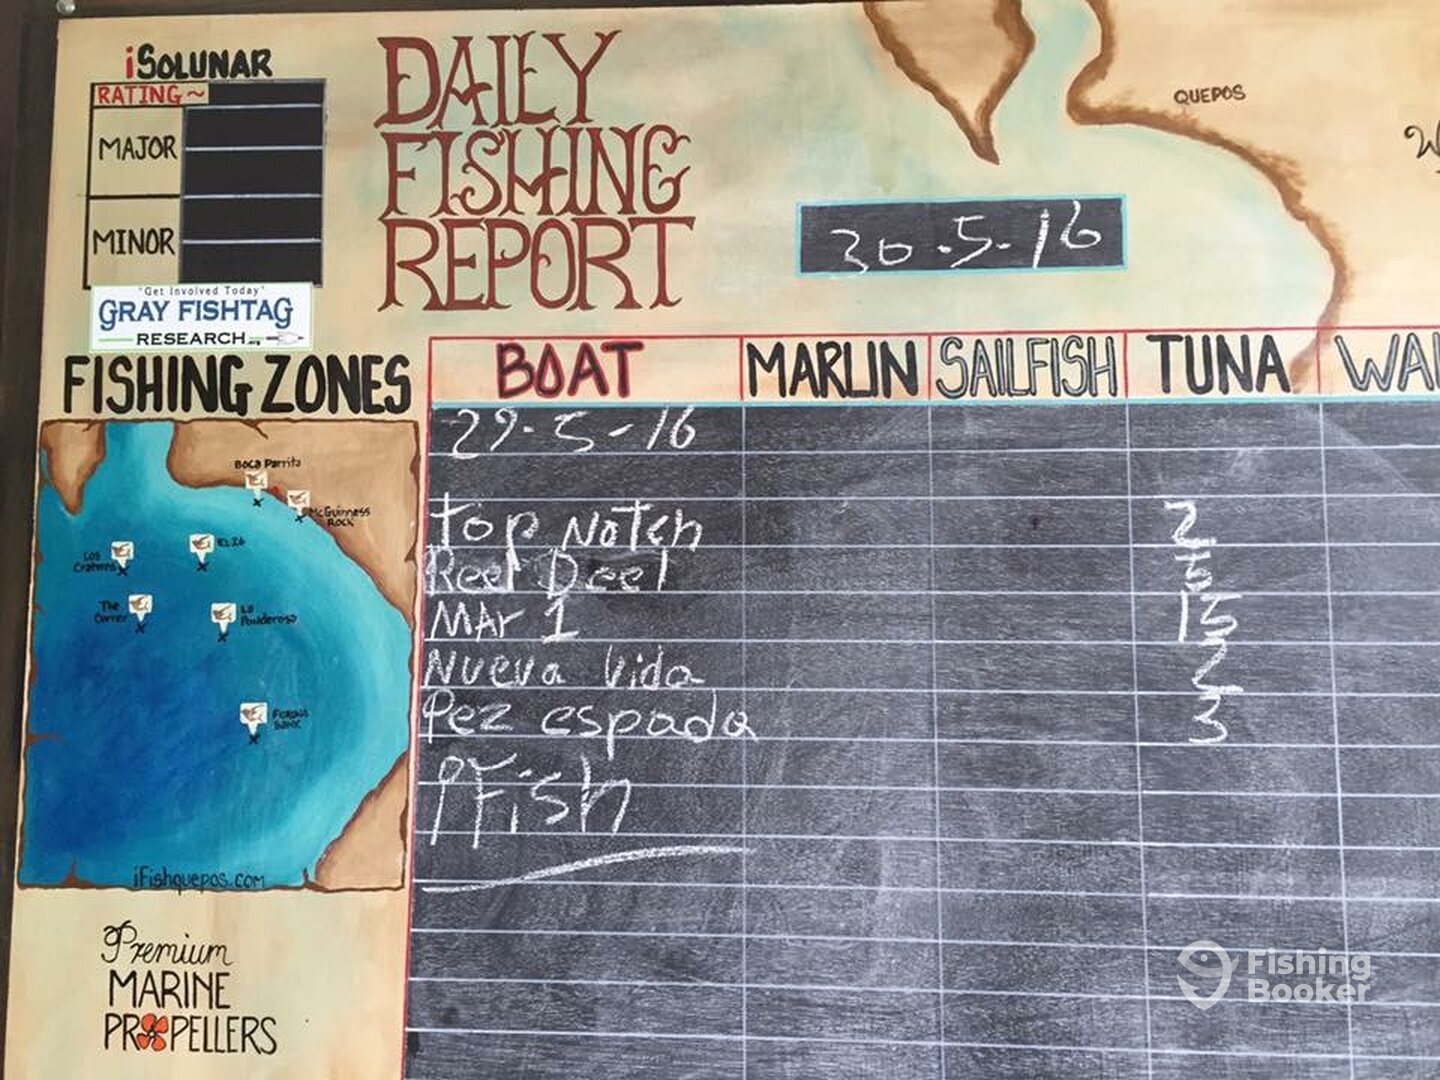 iSOLUNAR
RATING~
MAJOR
MINOR
"Get Involved Today"
GRAY FISHTAG
RESEARCH.org
DAILY
FISHING
REPORT
QUEPOS
30.5.16
FISHING ZONES
Boca Parrita
McGuinness
Rock
Los
El 26
The
Corner
La
Ponderosa
iFishquepos.com
Premium
MARINE
PROPELLERS
BOAT MARLIN SAILFISH TUNA WA
29.5-16
Top Notch 2
Reel Deel 5
Mar 1 15
Nueva Vida 2
Pez espada 3
iFish
Fishing
Booker